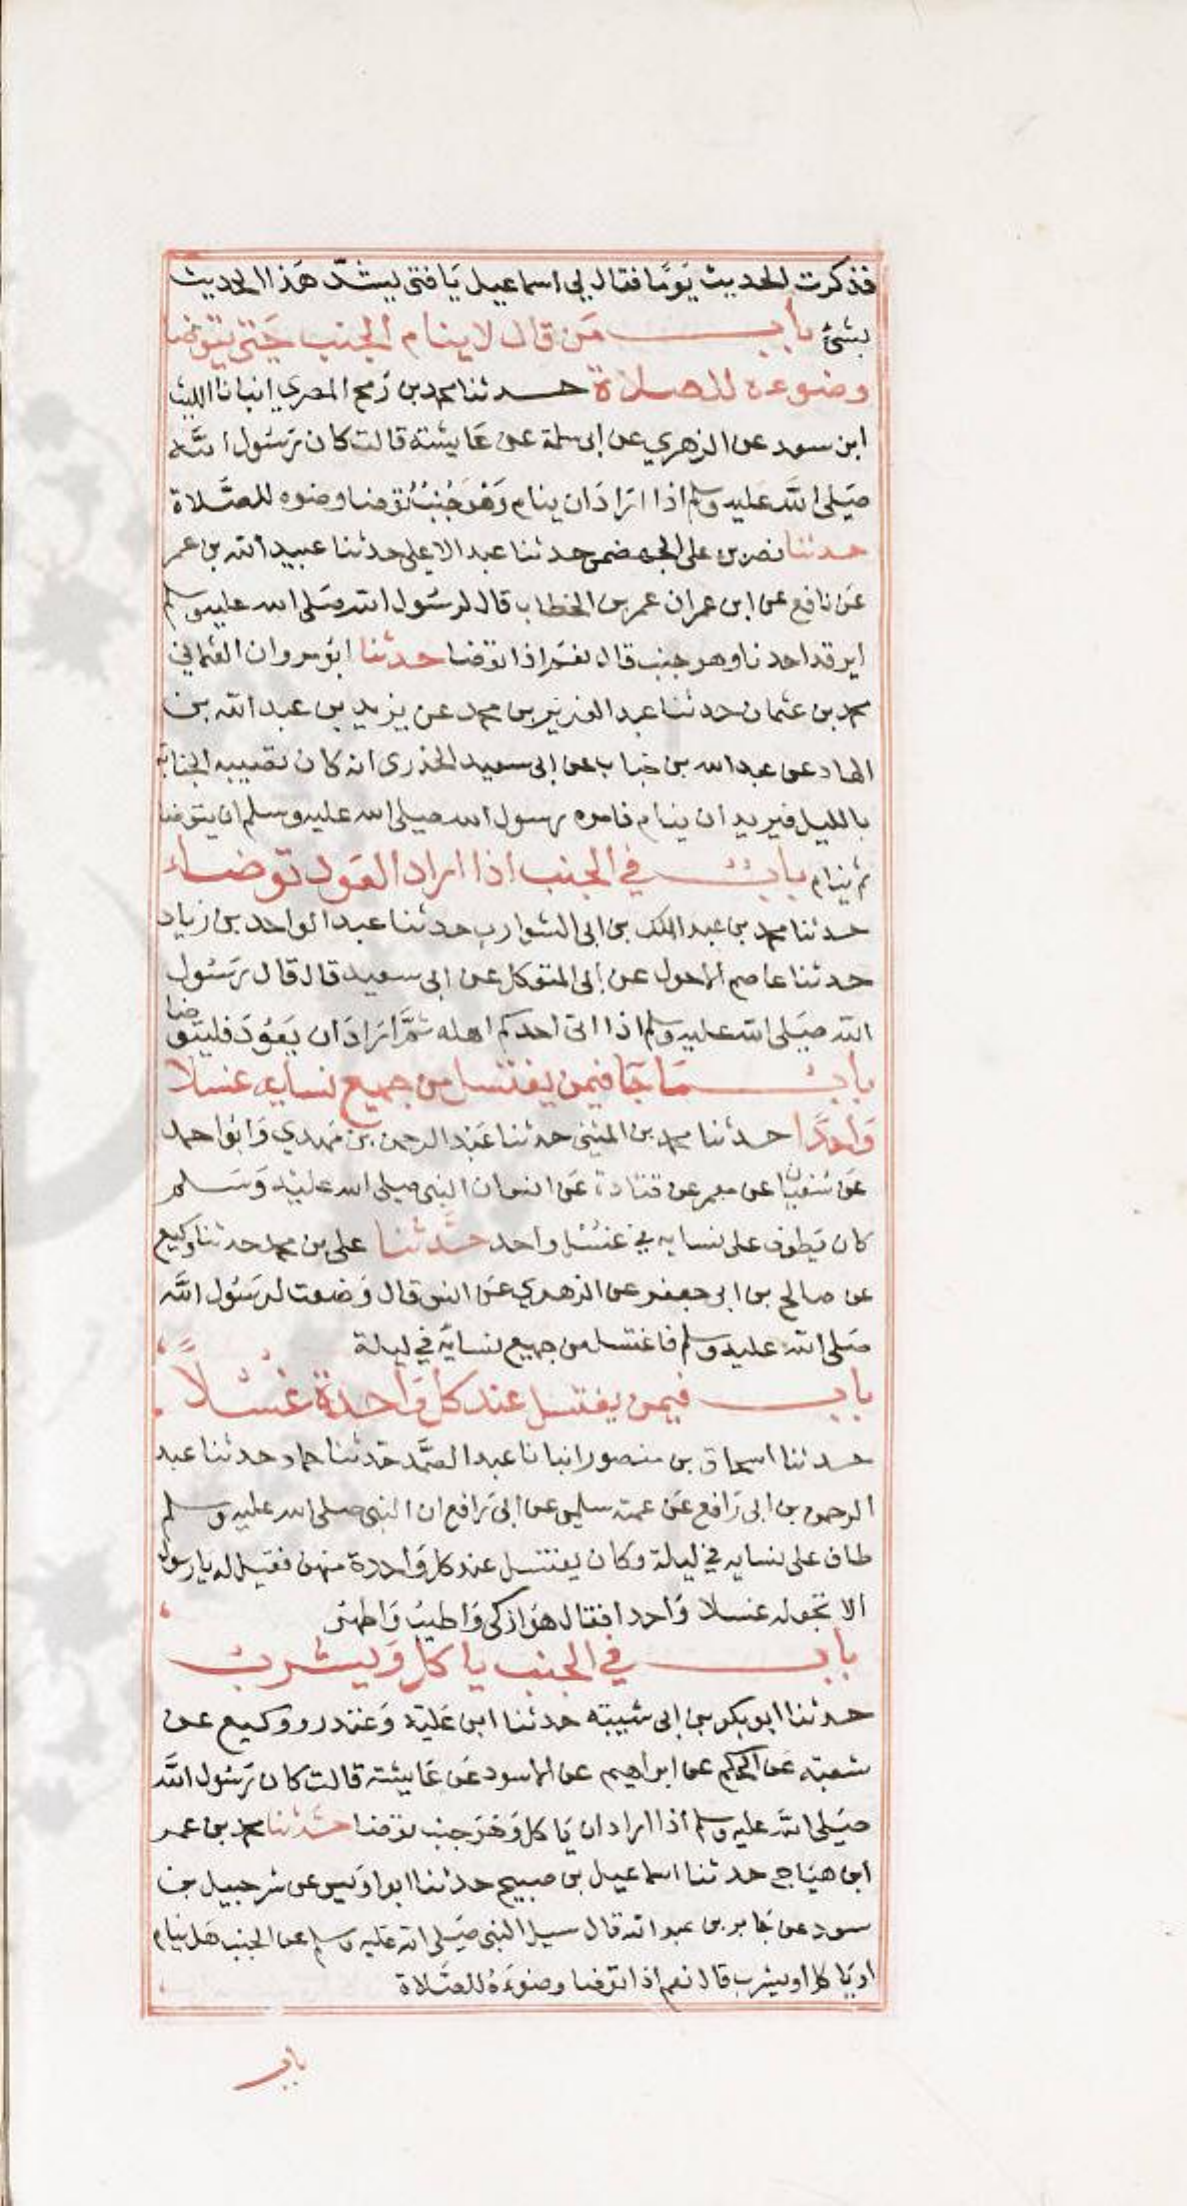 فذكرت الحديث يوما فقال لي اسماعيل يا فتى يشد هذا الحديث
بشئ باب من قال لا ينام الجنب حتى يتوضا
وضوءه للصلاة حدثنا محمد بن رمح المصري انبانا الليث
ابن سعد عن الزهري عن ابي سلمة عن عايشة قالت كان رسول الله
صلى الله عليه وسلم اذا اراد ان ينام وهو جنب توضا وضوه للصلاة
حدثنا نصر بن علي الجهضمي حدثنا عبد الاعلى حدثنا عبيد الله بن عمر
عن نافع عن ابن عمر ان عمر بن الخطاب قال لرسول الله صلى الله عليه وسلم
ايرقد احدنا وهو جنب قال نعم اذا توضا حدثنا ابو مروان العثماني
محمد بن عثمان حدثنا عبد العزيز بن محمد عن يزيد بن عبد الله بن
الهاد عن عبد الله بن خباب عن ابي سعيد الخدري انه كان تصيبه الجنابة
بالليل فيريد ان ينام فامره رسول الله صلى الله عليه وسلم ان يتوضا
ثم ينام باب في الجنب اذا اراد العود توضاء
حدثنا محمد بن عبد الملك بن ابي الشوارب حدثنا عبد الواحد بن زياد
حدثنا عاصم الاحول عن ابي المتوكل عن ابي سعيد قال قال رسول
الله صلى الله عليه وسلم اذا اتى احدكم اهله ثم اراد ان يعود فليتوضا
باب ما جا فيمن يغتسل من جميع نسايه غسلا
واحدا حدثنا محمد بن المثنى حدثنا عبد الرحمن بن مهدي وابو احمد
عن سفيان عن معمر عن قتادة عن انس ان النبي صلى الله عليه وسلم
كان يطوف على نسايه في غسل واحد حدثنا علي بن محمد حدثنا وكيع
عن صالح بن ابي جعفر عن الزهري عن انس قال وضعت لرسول الله
صلى الله عليه وسلم فاغتسل من جميع نسايه في ليلة
باب فيمن يغتسل عند كل واحدة غسلا
حدثنا اسحاق بن منصور انبانا عبد الصمد حدثنا حماد حدثنا عبد
الرحمن بن ابي رافع عن عمته سلمى عن ابي رافع ان النبي صلى الله عليه وسلم
طاف على نسايه في ليلة وكان يغتسل عند كل واحدة منهن فقيل له يا رسول
الا تجعله غسلا واحدا فقال هو ازكى واطيب واطهر
باب في الجنب ياكل ويشرب
حدثنا ابو بكر بن ابي شيبة حدثنا ابن علية وغندر ووكيع عن
شعبة عن الحكم عن ابراهيم عن الاسود عن عايشة قالت كان رسول الله
صلى الله عليه وسلم اذا اراد ان ياكل وهو جنب توضا حدثنا محمد بن عمر
ابن هياج حدثنا اسماعيل بن صبيح حدثنا ابو اويس عن شرحبيل بن
سعد عن جابر بن عبد الله قال سيل النبي صلى الله عليه وسلم عن الجنب هل ينام
او ياكل او يشرب قال نعم اذا توضا وضوءه للصلاة
باب